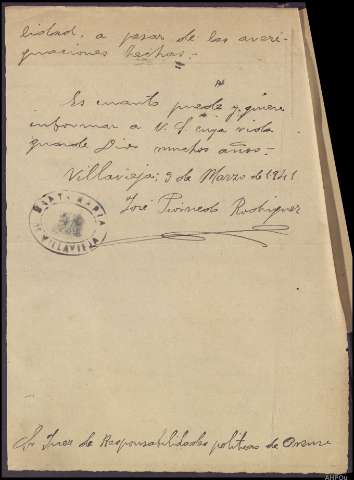 lidad, a pesar de las averi-
guaciones hechas.-
Es cuanto puede y quiere
informar a V. S. cuya vida
guarde Dios muchos años.-
Villavieja, 9 de Marzo de 1941
José Rodriguez
SANTA MARIA
VILLAVIEJA
Sr Juez de Responsabilidades politicas de Orense
AHPOu